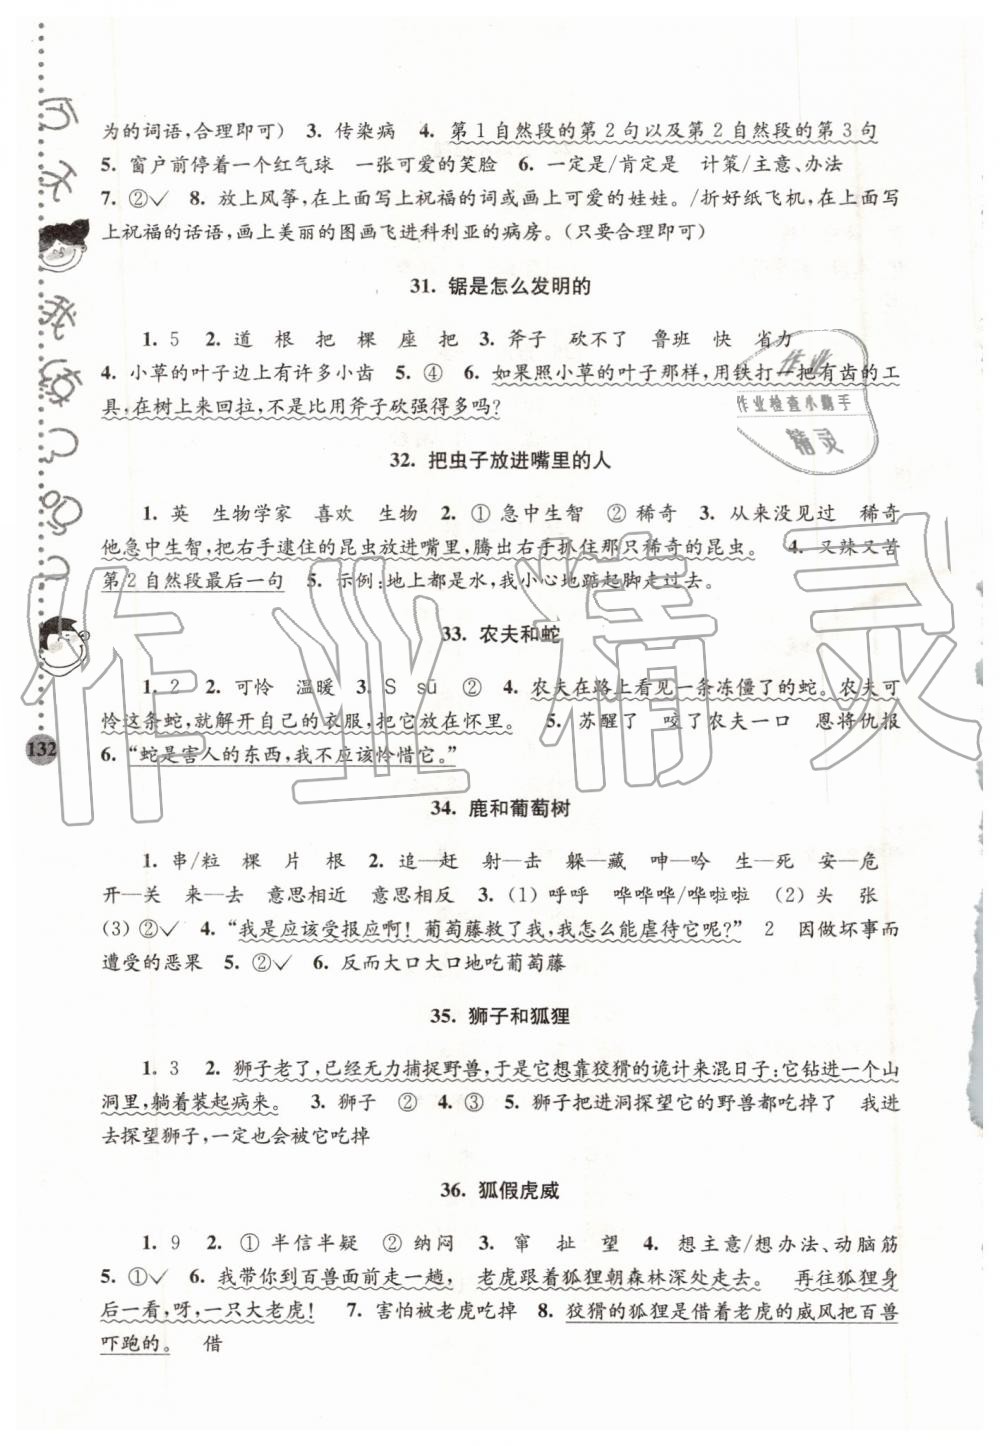 为的词语,合理即可) 3. 传染病 4. 第1自然段的第2句以及第2自然段的第3句
5. 窗户前停着一个红气球 一张可爱的笑脸 6. 一定是/肯定是 计策/主意、办法
7. ②✓ 8. 放上风筝,在上面写上祝福的词或画上可爱的娃娃。/折好纸飞机,在上面写
上祝福的话语,画上美丽的图画飞进科利亚的病房。(只要合理即可)
31. 锯是怎么发明的
1. 5 2. 道 根 把 棵 座 把 3. 斧子 砍不了 鲁班 快 省力
4. 小草的叶子边上有许多小齿 5. ④ 6. 如果照小草的叶子那样,用铁打一把有齿的工
具,在树上来回拉,不是比用斧子砍强得多吗?
作业
作业检查小助手
精灵
32. 把虫子放进嘴里的人
1. 英 生物学家 喜欢 生物 2. ① 急中生智 ② 稀奇 3. 从来没见过 稀奇
他急中生智,把右手逮住的昆虫放进嘴里,腾出右手抓住那只稀奇的昆虫。 4. 又辣又苦
第2自然段最后一句 5. 示例:地上都是水,我小心地踮起脚走过去。
33. 农夫和蛇
1. 2 2. 可怜 温暖 3. S sū ② 4. 农夫在路上看见一条冻僵了的蛇。农夫可
怜这条蛇,就解开自己的衣服,把它放在怀里。 5. 苏醒了 咬了农夫一口 恩将仇报
132
6. “蛇是害人的东西,我不应该怜惜它。”
34. 鹿和葡萄树
1. 串/粒 棵 片 根 2. 追—赶 射—击 躲—藏 呻—吟 生—死 安—危
开—关 来—去 意思相近 意思相反 3. (1) 呼呼 哗哗哗/哗啦啦 (2) 头 张
(3) ②✓ 4. “我是应该受报应啊!葡萄藤救了我,我怎么能虐待它呢?” 2 因做坏事而
遭受的恶果 5. ②✓ 6. 反而大口大口地吃葡萄藤
35. 狮子和狐狸
1. 3 2. 狮子老了,已经无力捕捉野兽,于是它想靠狡猾的诡计来混日子:它钻进一个山
洞里,躺着装起病来。 3. 狮子 ② 4. ③ 5. 狮子把进洞探望它的野兽都吃掉了 我进
去探望狮子,一定也会被它吃掉
36. 狐假虎威
1. 9 2. ① 半信半疑 ② 纳闷 3. 窜 扯 望 4. 想主意/想办法、动脑筋
5. ①✓ 6. 我带你到百兽面前走一趟, 老虎跟着狐狸朝森林深处走去。 再往狐狸身
后一看,呀,一只大老虎! 7. 害怕被老虎吃掉 8. 狡猾的狐狸是借着老虎的威风把百兽
吓跑的。 借
作业精灵